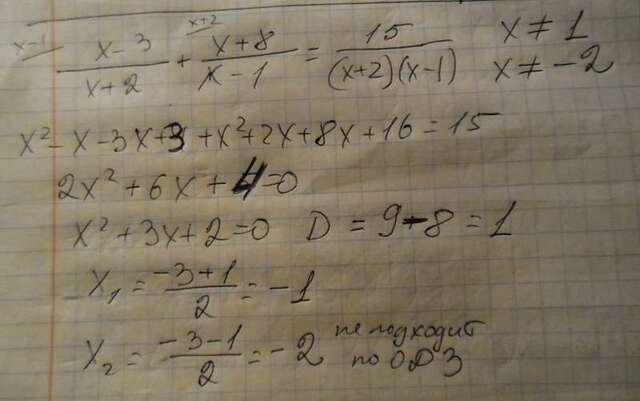 x-1 x+2
x-3/x+2 + x+8/x-1 = 15/(x+2)(x-1) x ≠ 1
x ≠ -2
x² - x - 3x + 3 + x² + 2x + 8x + 16 = 15
2x² + 6x + 4 = 0
x² + 3x + 2 = 0 D = 9 - 8 = 1
x₁ = -3+1/2 = -1
x₂ = -3-1/2 = -2 не подходит
по ОДЗ